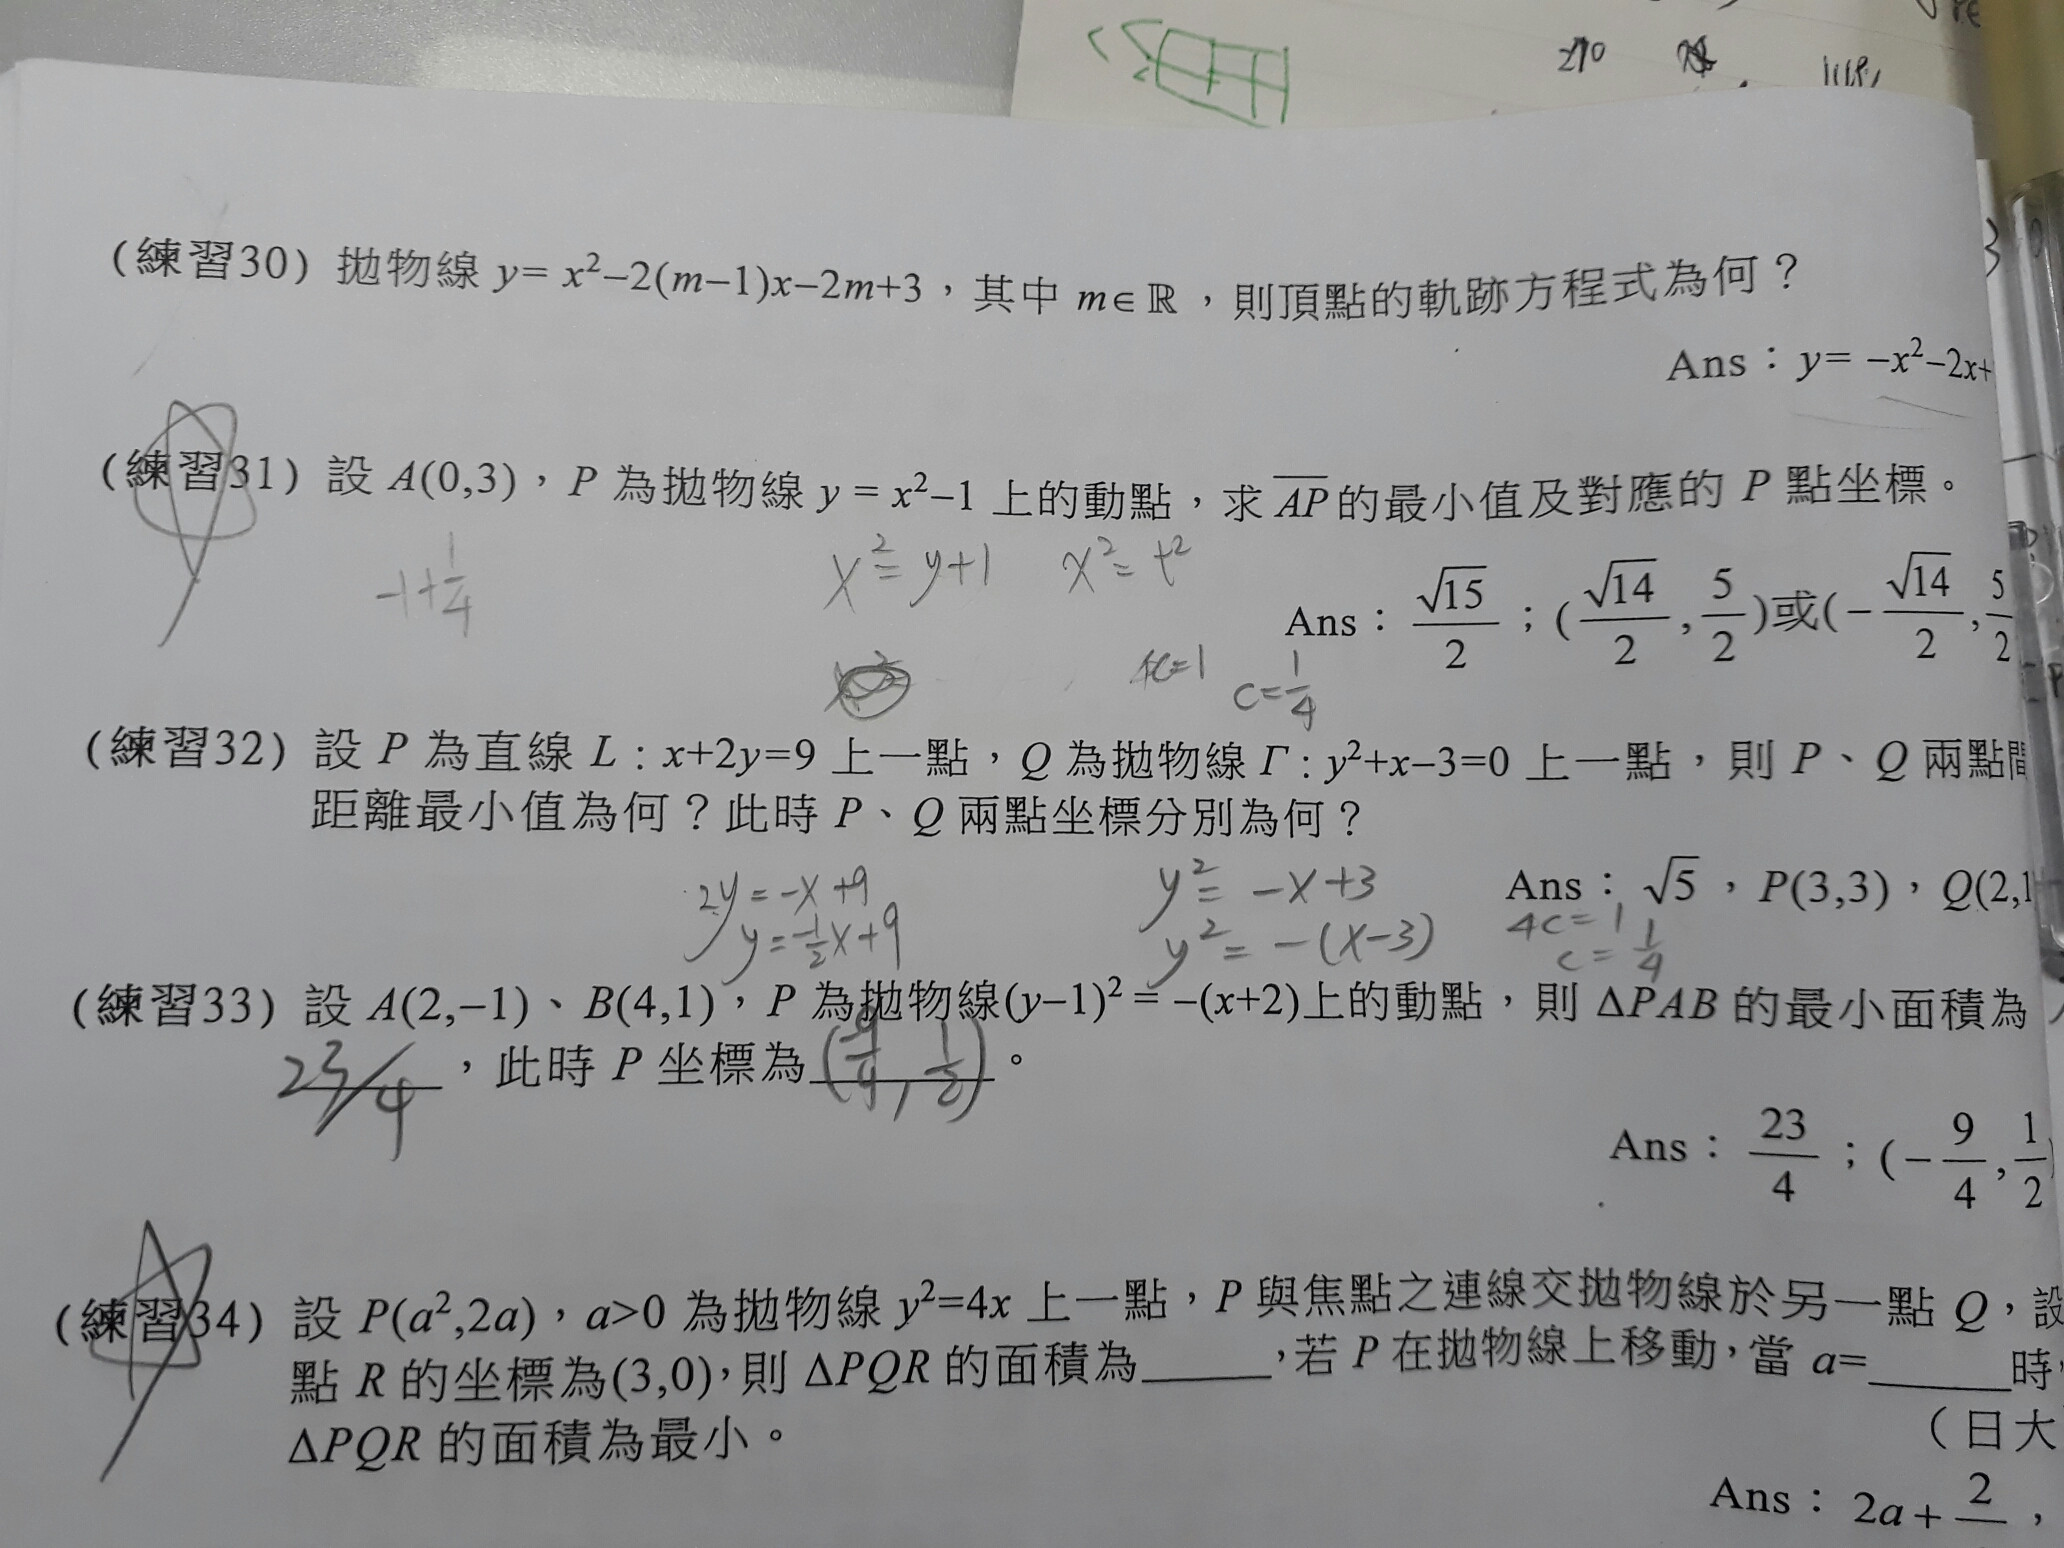 270
(練習30) 拋物線 y= x²–2(m–1)x–2m+3，其中 m∈ℝ，則頂點的軌跡方程式為何？
Ans：y= –x²–2x+
(練習31) 設 A(0,3)，P 為拋物線 y = x²–1 上的動點，求 \overline{AP} 的最小值及對應的 P 點坐標。
-1+1/4
x²=y+1 x²=t²
Ans：√15/2；(√14/2, 5/2)或(–√14/2, 5/2
4c=1 c=1/4
(練習32) 設 P 為直線 L : x+2y=9 上一點，Q 為拋物線 Γ : y²+x–3=0 上一點，則 P、Q 兩點間
距離最小值為何？此時 P、Q 兩點坐標分別為何？
2y=-x+9
y=-1/2x+9
y²=-x+3
y²=-(x-3)
Ans：√5，P(3,3)，Q(2,1
4c=1
c=1/4
(練習33) 設 A(2,–1)、B(4,1)，P 為拋物線(y–1)² = –(x+2)上的動點，則 ΔPAB 的最小面積為
23/4，此時 P 坐標為(-9/4, 1/2)。
Ans：23/4；(–9/4, 1/2
(練習34) 設 P(a²,2a)，a>0 為拋物線 y²=4x 上一點，P 與焦點之連線交拋物線於另一點 Q，設
點 R 的坐標為(3,0)，則 ΔPQR 的面積為_____，若 P 在拋物線上移動，當 a=_____時，
ΔPQR 的面積為最小。
（日大
Ans：2a + 2/ ，